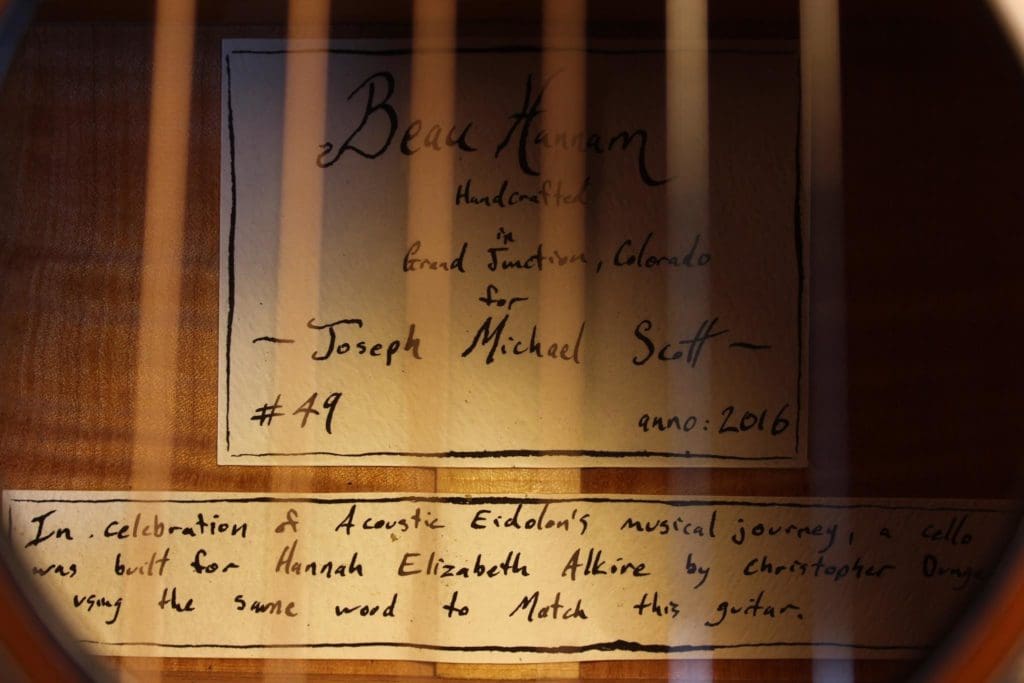 Beau Hannam
Handcrafted
in
Grand Junction, Colorado
for
— Joseph Michael Scott —
#49 anno: 2016
In celebration of Acoustic Eidolon's musical journey, a cello
was built for Hannah Elizabeth Alkire by christopher
using the same word to Match this guitar.